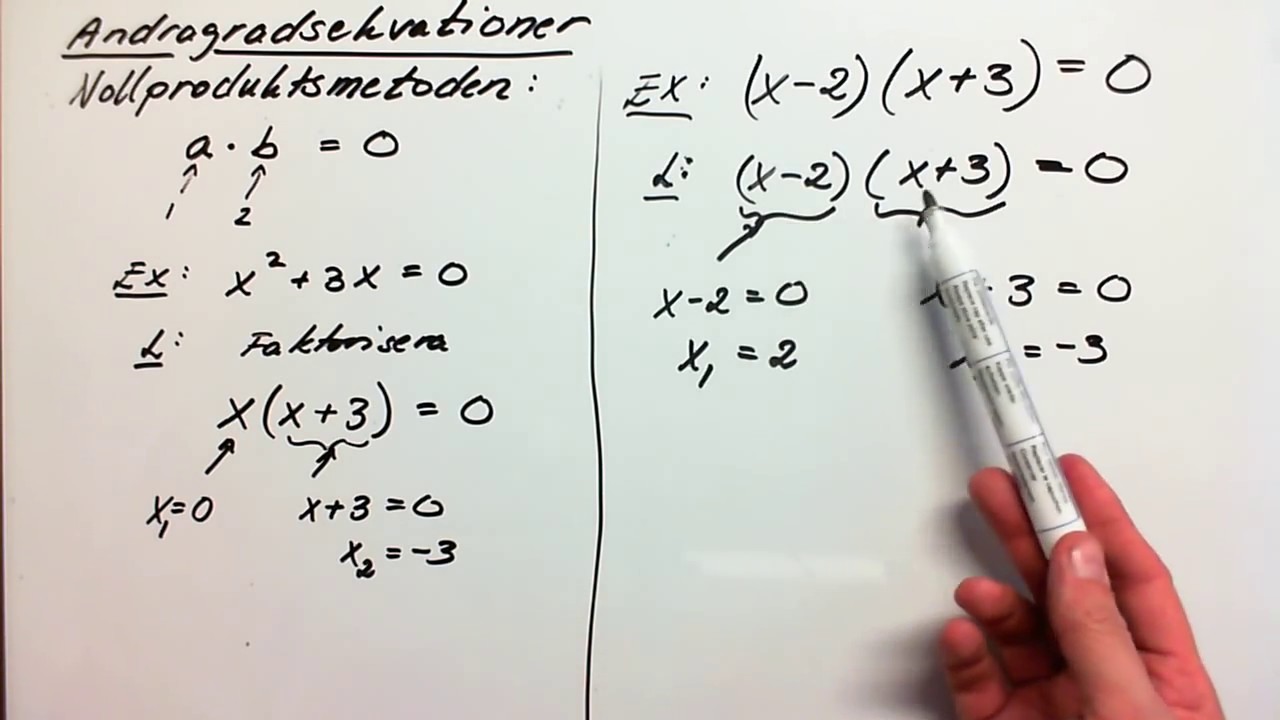 Andragradsekvationer
Nollproduktsmetoden:
a · b = 0
1 2
Ex: x² + 3x = 0
L: Faktorisera
x(x+3) = 0
x₁=0 x+3=0
x₂=-3
Ex: (x-2)(x+3)=0
L: (x-2)(x+3)=0
x-2=0 3=0
x₁=2 =-3